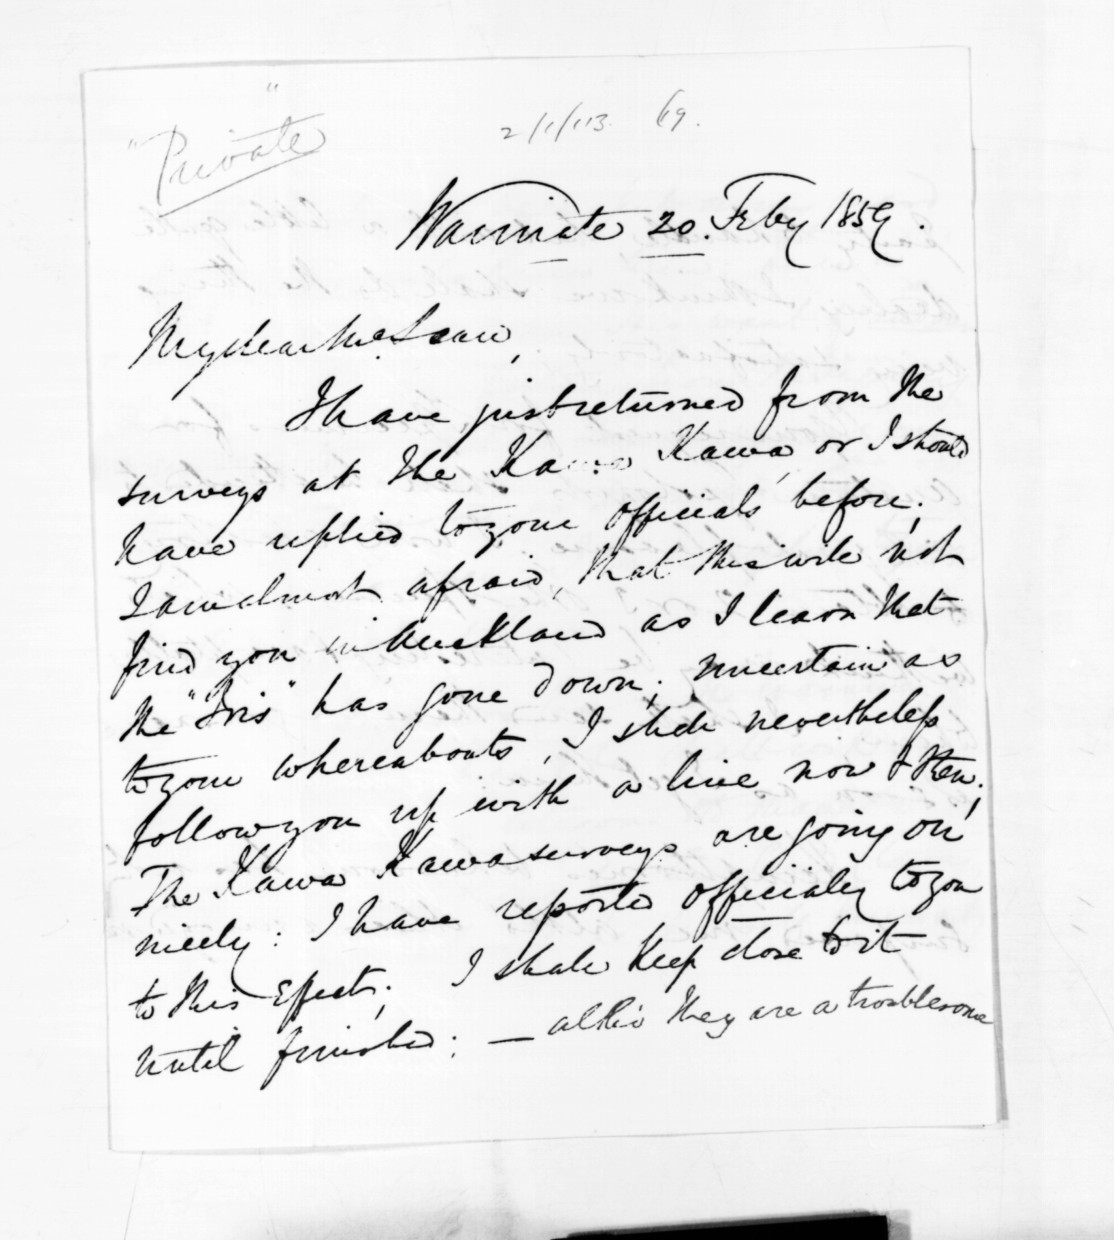 "Private"
2/1/113. 69.
Waimate 20. Feby 1859.
My dear McLean,
I have just returned from the
surveys at the Kawa Kawa, or I should
have replied to your officials before;
I am almost afraid, that this will not
find you in Auckland as I learn that
the "Iris" has gone down; uncertain as
to your whereabouts, I shall nevertheless
follow you up with a line now & then;
The Kawa Kawa surveys are going on
nicely: I have reported officially to you
to this Effect; I shall keep close to it
until finished; — altho' they are a troublesome